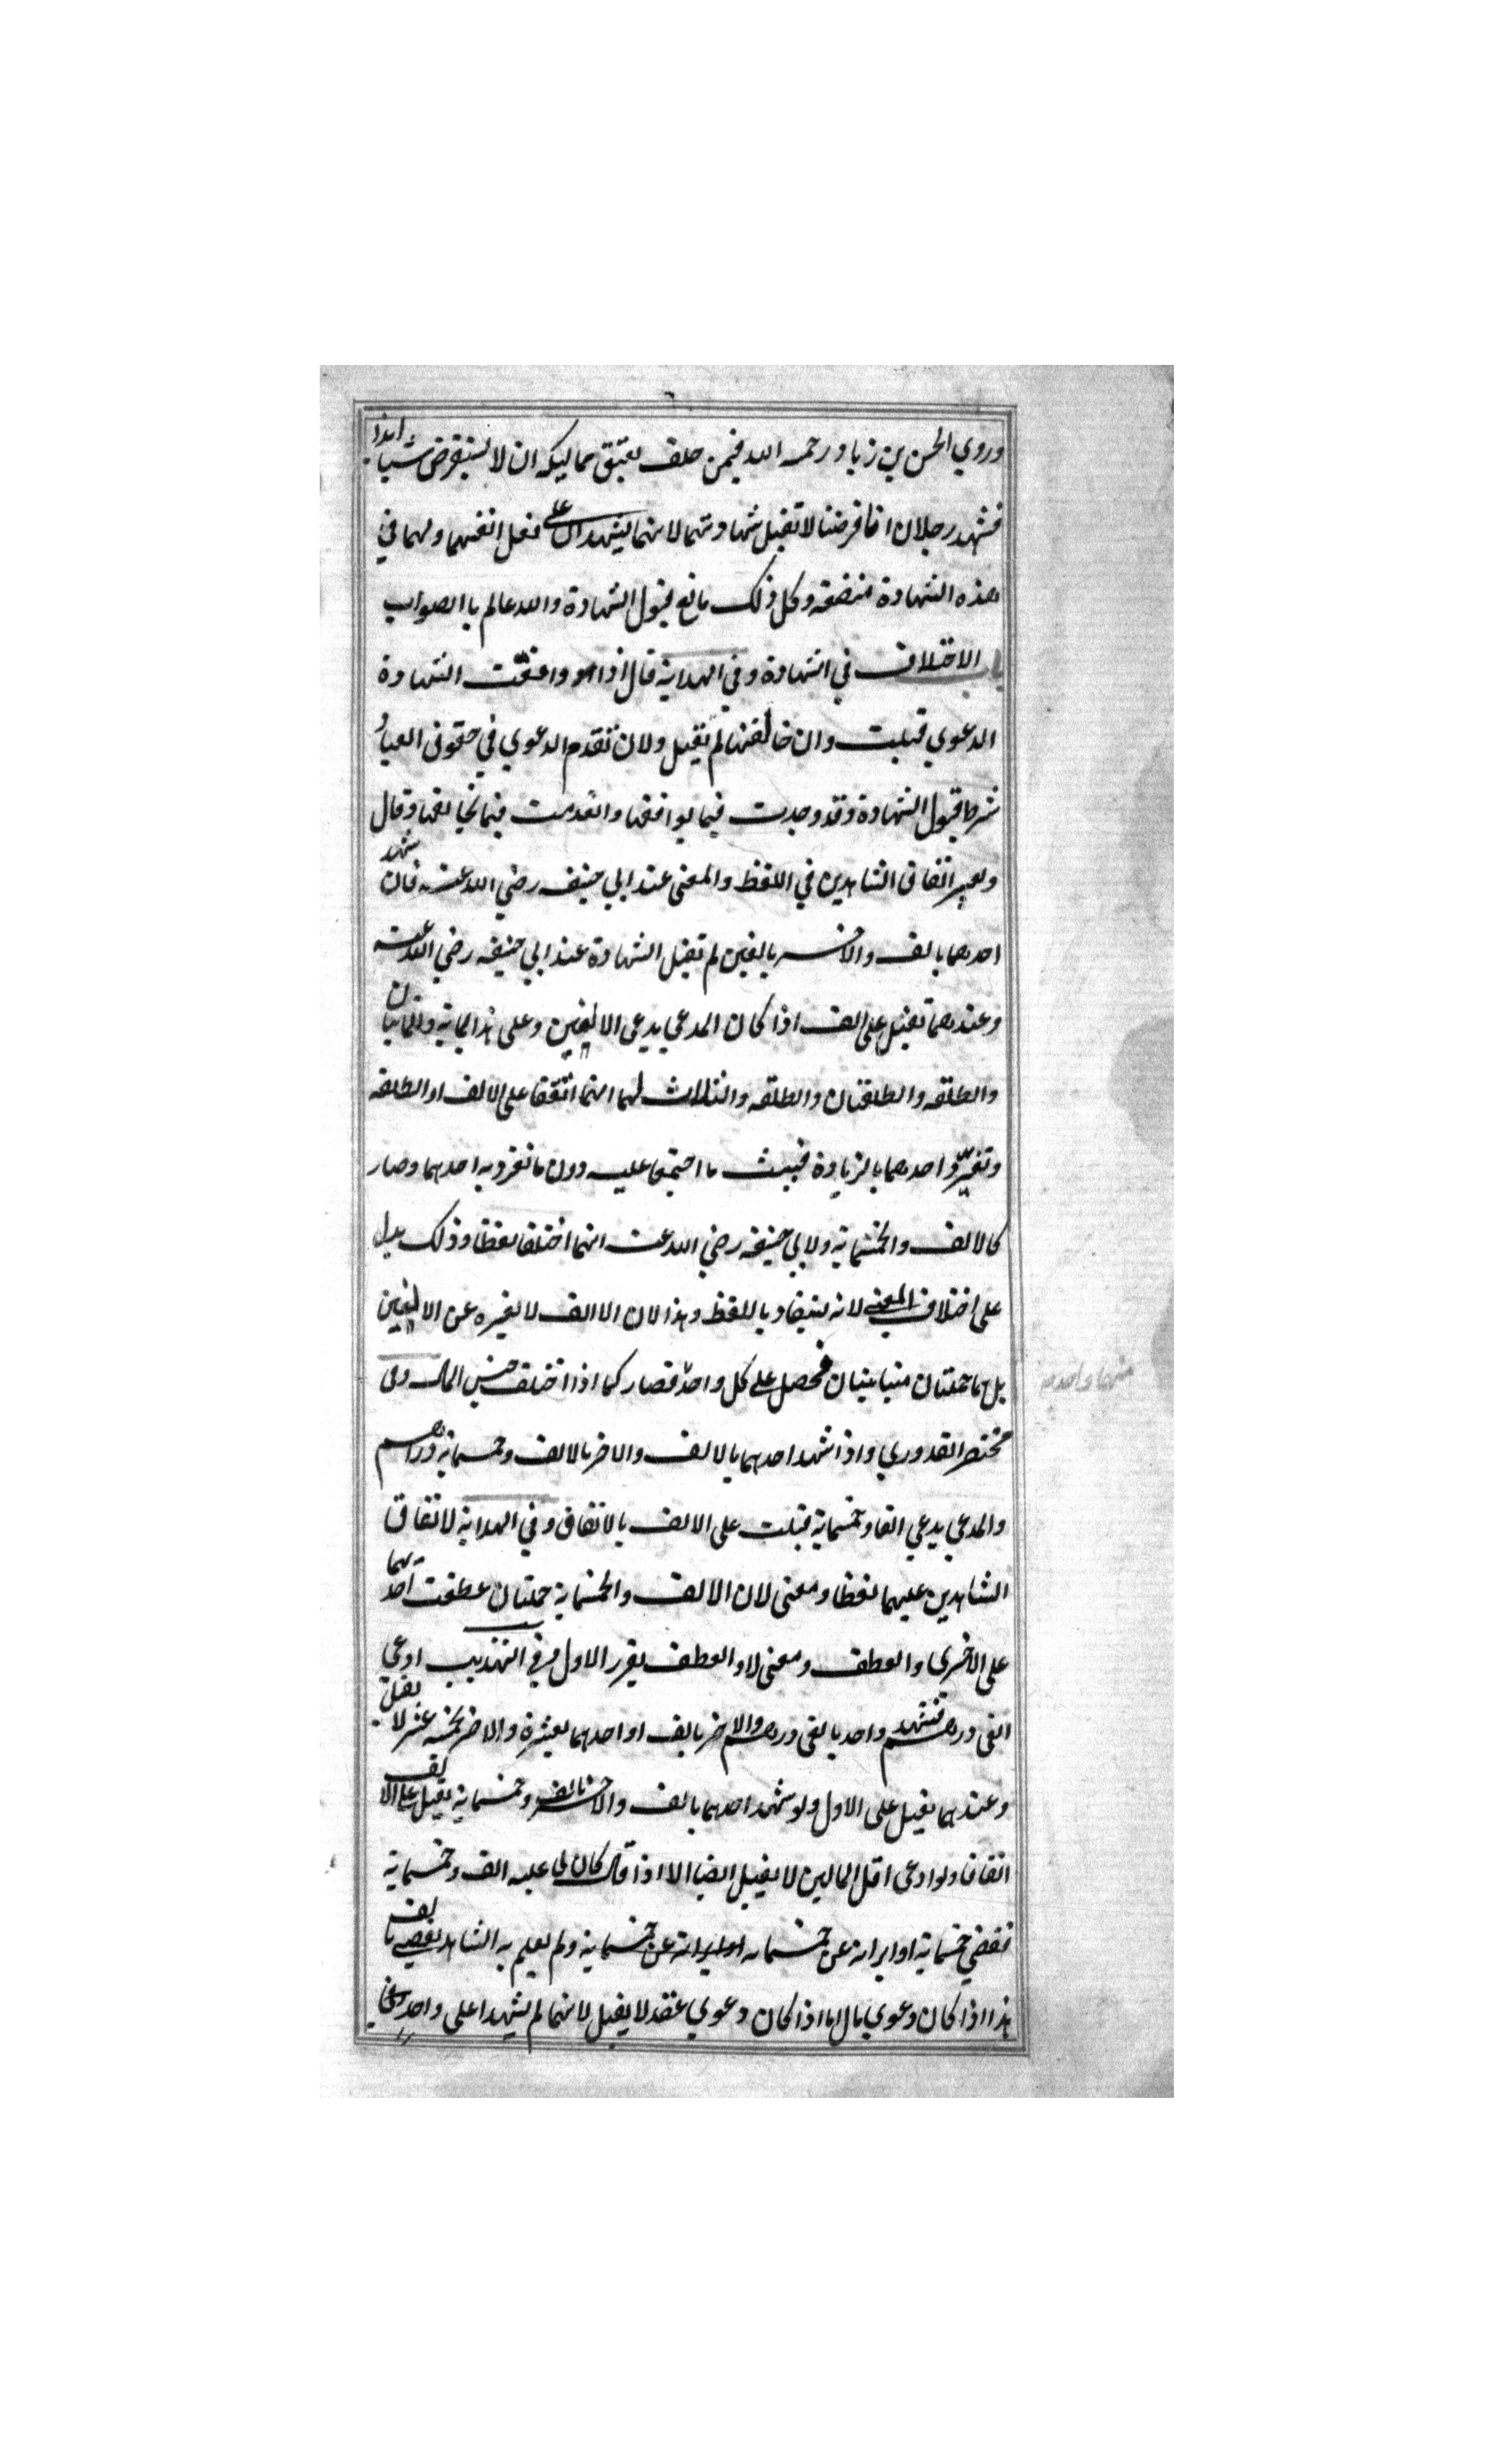 وروي الحسن بن زياد رحمه الله فيمن حلف بعتق مماليكه ان لا يستقرض شيا ابدا
فشهد رجلان انا قرضنا لا تقبل شهادتهما لانهما يشهدان على فعل انفسهما ولهما في
هذه الشهادة منفعة وكل ذلك مانع قبول الشهادة والله عالم باالصواب
باب الاختلاف في الشهادة وفي الهداية قال اذا وافقت الشهادة
الدعوي قبلت وان خالفتها لم تقبل ولان تقدم الدعوي في حقوق العباد
شرط قبول الشهادة وقد وجدت فيما يوافقها وانعدمت فيما يخالفها وقال
ويعتبر اتفاق الشاهدين في اللفظ والمعنى عند ابي حنيفه رضي الله عنه فان شهد
احدهما بالف والاخر بالفين لم تقبل الشهادة عند ابي حنيفه رضي الله عنه
وعندهما تقبل على الف اذا كان المدعي يدعي الالفين وعلى هذا الماية والمايتان
والطلقه والطلقتان والطلقه والثلاث لهما انهما اتفقا على الالف او الطلقه
وتفرد احدهما بالزيادة فيثبت ما اجتمعا عليه دون ما تفرد به احدهما وصار
كالالف والخمسماية ولابي حنيفه رضي الله عنه انهما اختلفا لفظا وذلك يدل
على اختلاف المعنى لانه يستفاد باللفظ وهذا لان الالف لا يعبره عن الالفين
بل هما جملتان متباينتان فحصل على كل واحد فصار كما اذا اختلف جنس المال وفي
منهما واحدم
مختصر القدوري واذا شهد احدهما بالالف والاخر بالالف وخمسماية دراهم
والمدعي يدعي الفا وخمسماية قبلت على الالف بالاتفاق وفي الهداية لاتفاق
الشاهدين عليهما لفظا ومعنى لان الالف والخمسماية جملتان عطفت احديهما
على الاخرى والعطف ومعنى لاوالعطف يقرر الاول وفي التهذيب ادعي
الفى درهم فشهد واحد بالفى درهم والاخر بالف او احدهما بعشرة والاخر بخمسه عشر لا يقبل
وعندهما يقبل على الاول ولو شهد احدهما بالف والاخر بالف وخمسماية يقبل على الالف
اتفاقا ولو ادعى اقل المالين لا يقبل ايضا الا اذا قال كان لي عليه الف وخمسماية
فقضي خمسماية او ابراته عن خمسمايه او ابراته عن خمسماية ولم يعلم به الشاهد يقضي بالف
هذا اذا كان دعوي بمال اما اذا كان دعوي عقد لا يقبل لانهما لم يشهدا على واحد